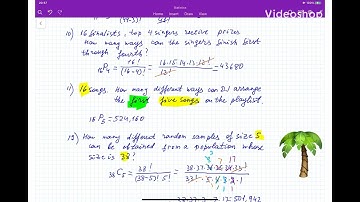 20:57
Statistics
Videoshop
10) 16 finalists, top 4 singers receive prizes
How many ways can the singers finish first
through fourth?
16P4 = 16! / (16-4)! = 16·15·14·13·12! / 12! = 43680
11) 16 songs. How many different ways can DJ arrange
the first five songs on the playlist.
16P5 = 524,160
12) How many different random samples of size 5
can be obtained from a population whose
size is 38?
38C5 = 38! / (38-5)! 5! =
= 501,942